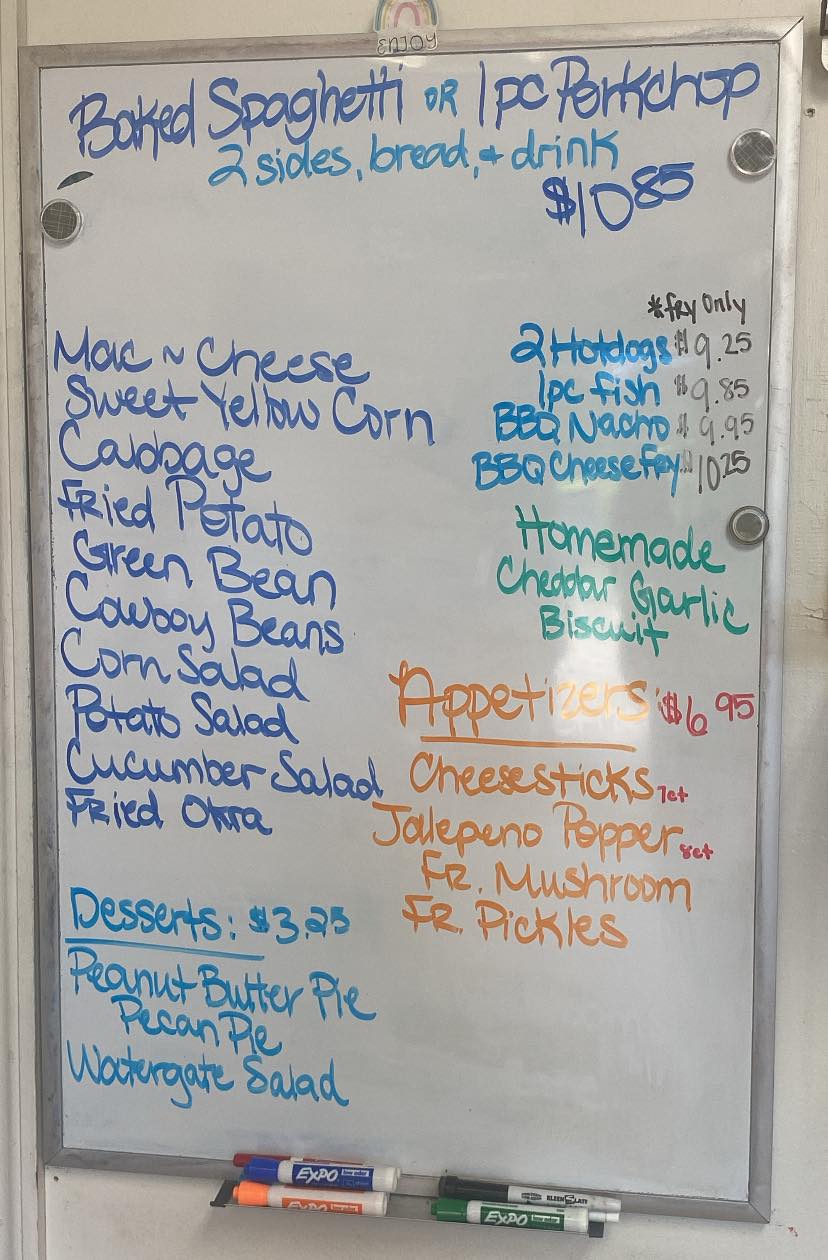 ENJOY
Baked Spaghetti OR 1pc Porkchop
2 sides, bread, + drink
$10.85
Mac ~ Cheese
Sweet Yellow Corn
Cabbage
Fried Potato
Green Bean
Cowboy Beans
Corn Salad
Potato Salad
Cucumber Salad
Fried Okra
Desserts: $3.25
Peanut Butter Pie
Pecan Pie
Watergate Salad
*fry Only
2 Hotdogs $9.25
1pc fish $9.85
BBQ Nacho $9.95
BBQ Cheese fry $10.25
Homemade
Cheddar Garlic
Biscuit
Appetizers: $6.95
Cheesesticks 7ct
Jalepeno Popper 8ct
FR. Mushroom
FR. Pickles
EXPO low odor
EXPO low odor
KLEENSLATE
EXPO low odor